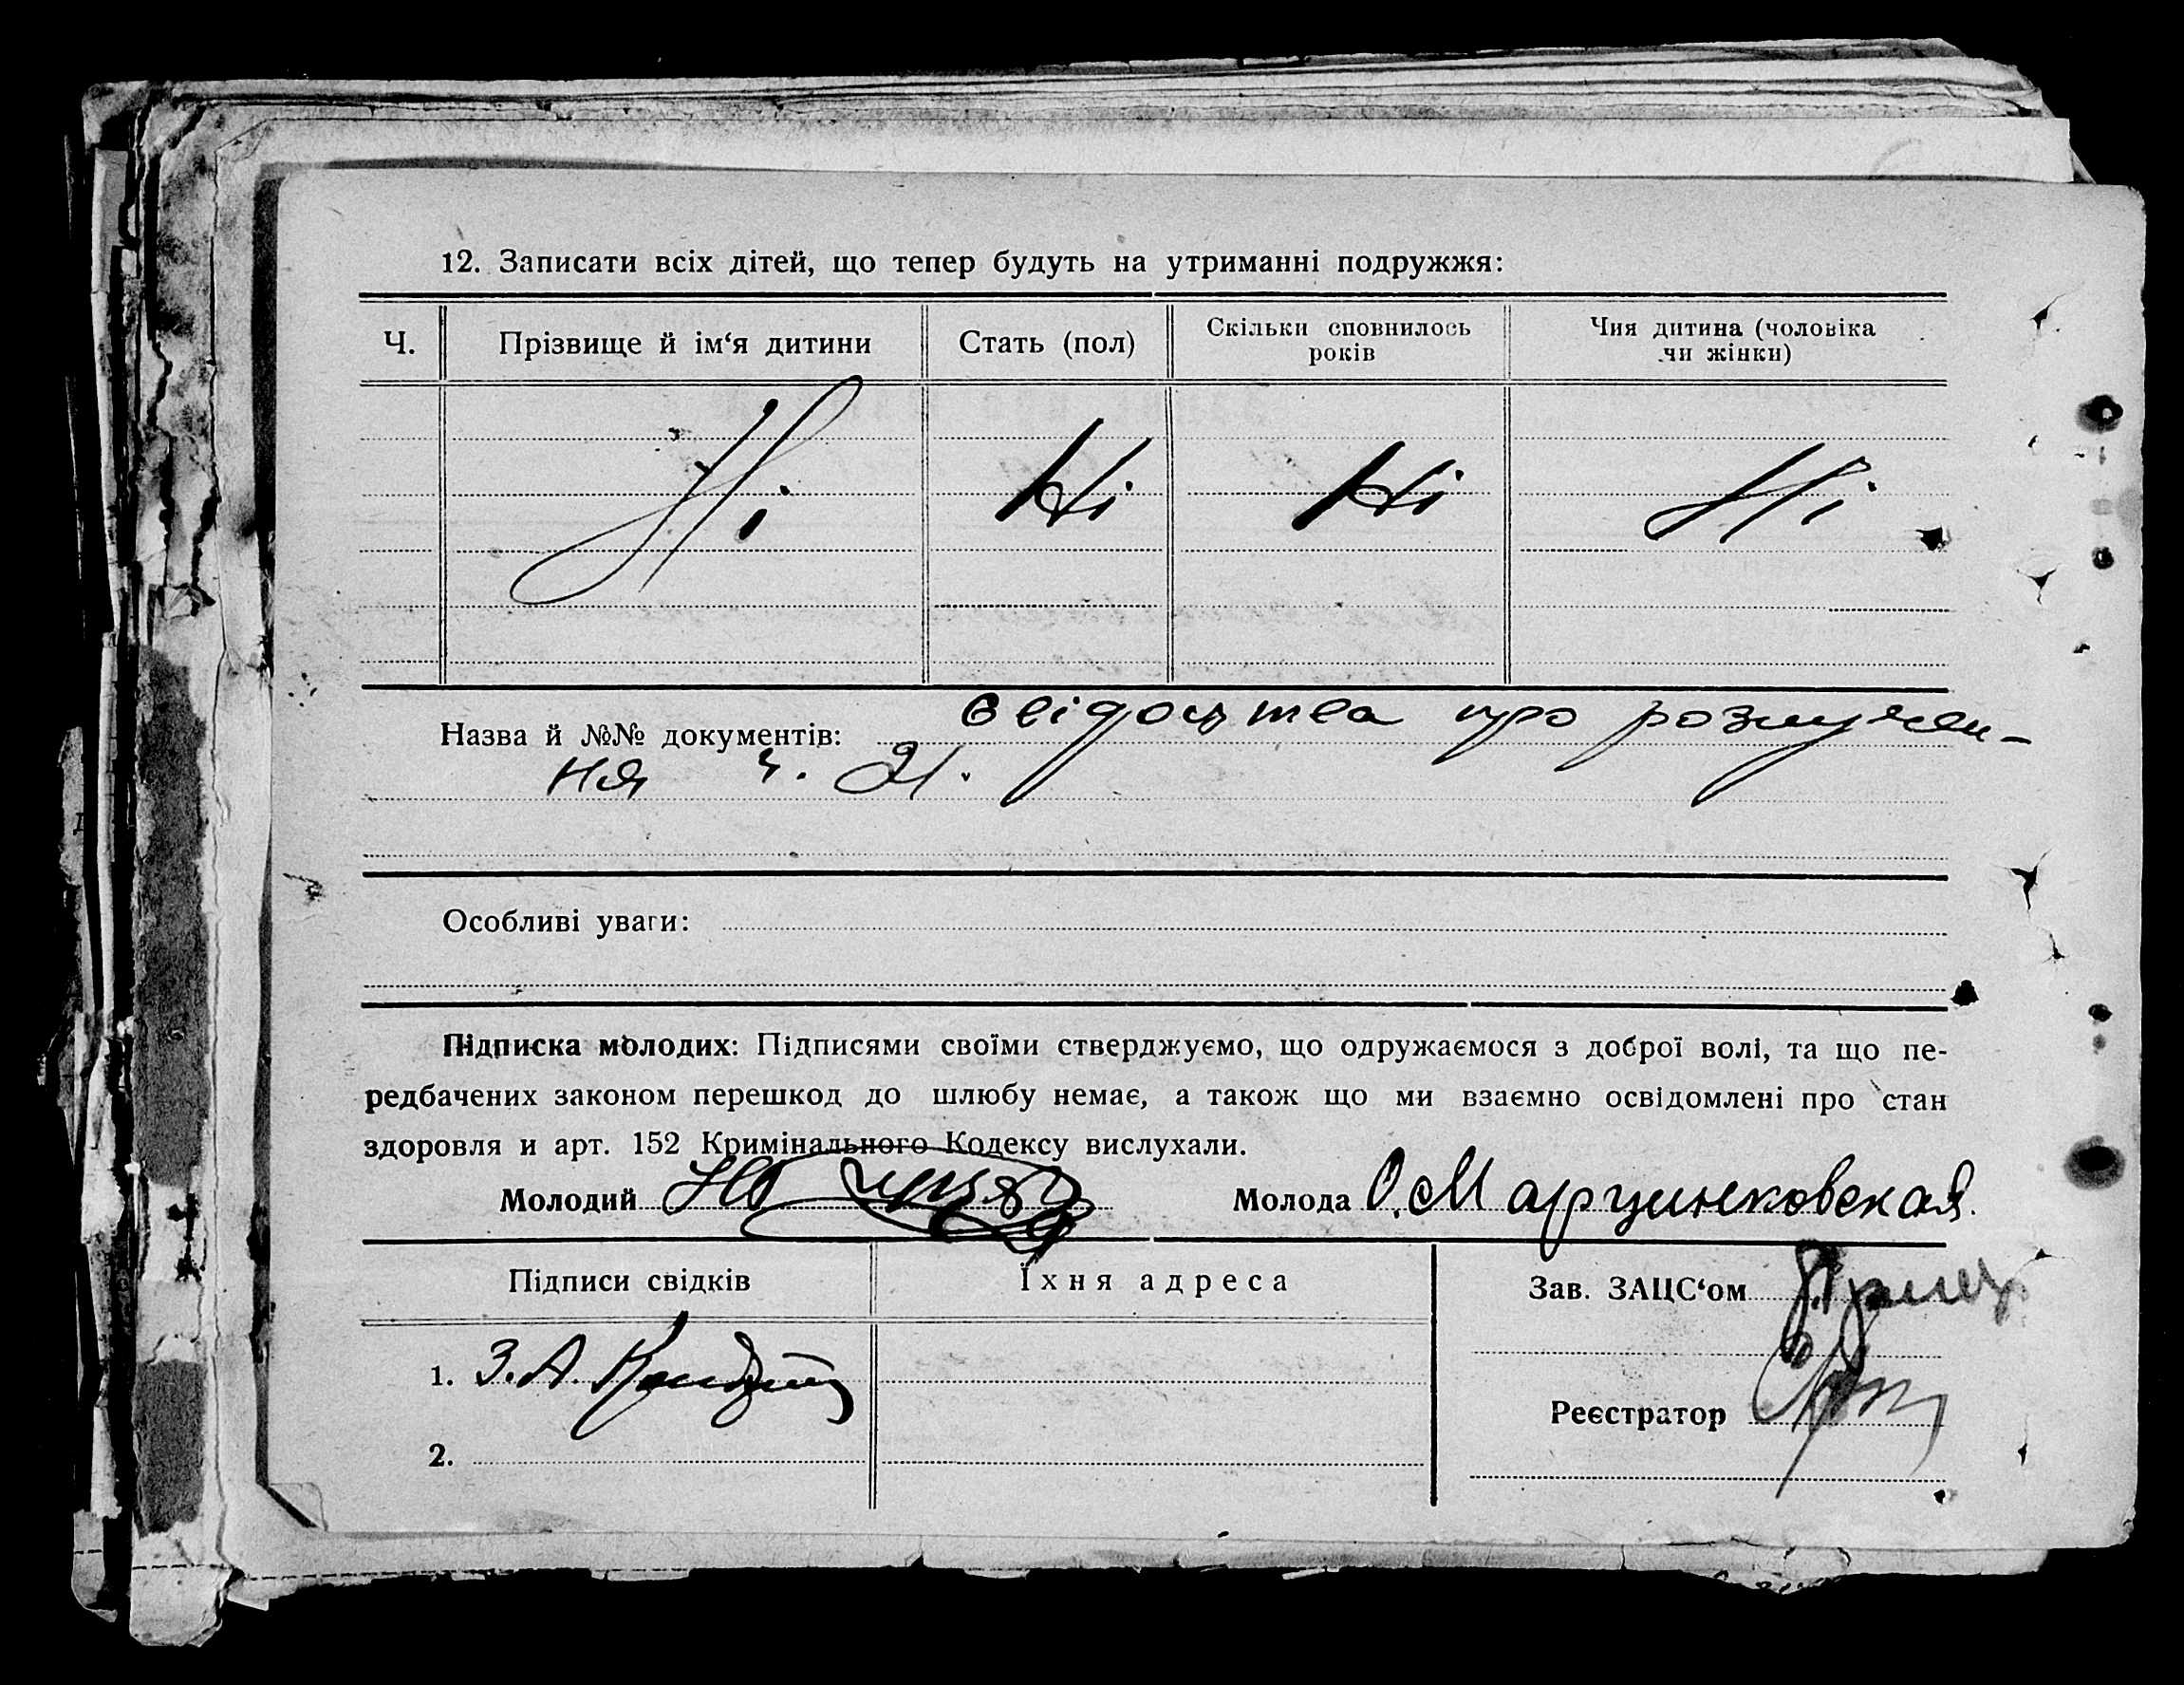 12. Записати всіх дітей, що тепер будуть на утриманні подружжя:
Ч. Прізвище й ім‘я дитини Стать (пол) Скільки сповнилось років Чия дитина (чоловіка чи жінки)
Ні Ні Ні Ні
Назва й №№ документів: свідоцтва про розлучен-
ня ч. 21.
Особливі уваги:
Підписка молодих: Підписями своїми стверджуємо, що одружаємося з доброї волі, та що пе-
редбачених законом перешкод до шлюбу немає, а також що ми взаємно освідомлені про стан
здоровля и арт. 152 Кримінального Кодексу вислухали.
Молодий Молода О. Марцинковская.
Підписи свідків Їхня адреса Зав. ЗАЦС‘ом
1. З. А.
Реєстратор
2.